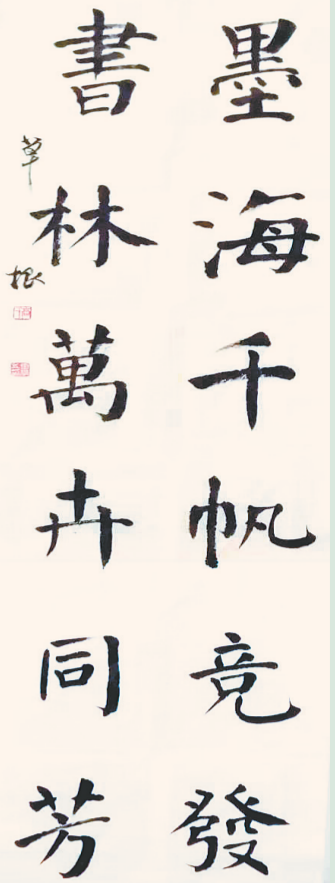 墨海千帆竞發
書林萬卉同芳
草根